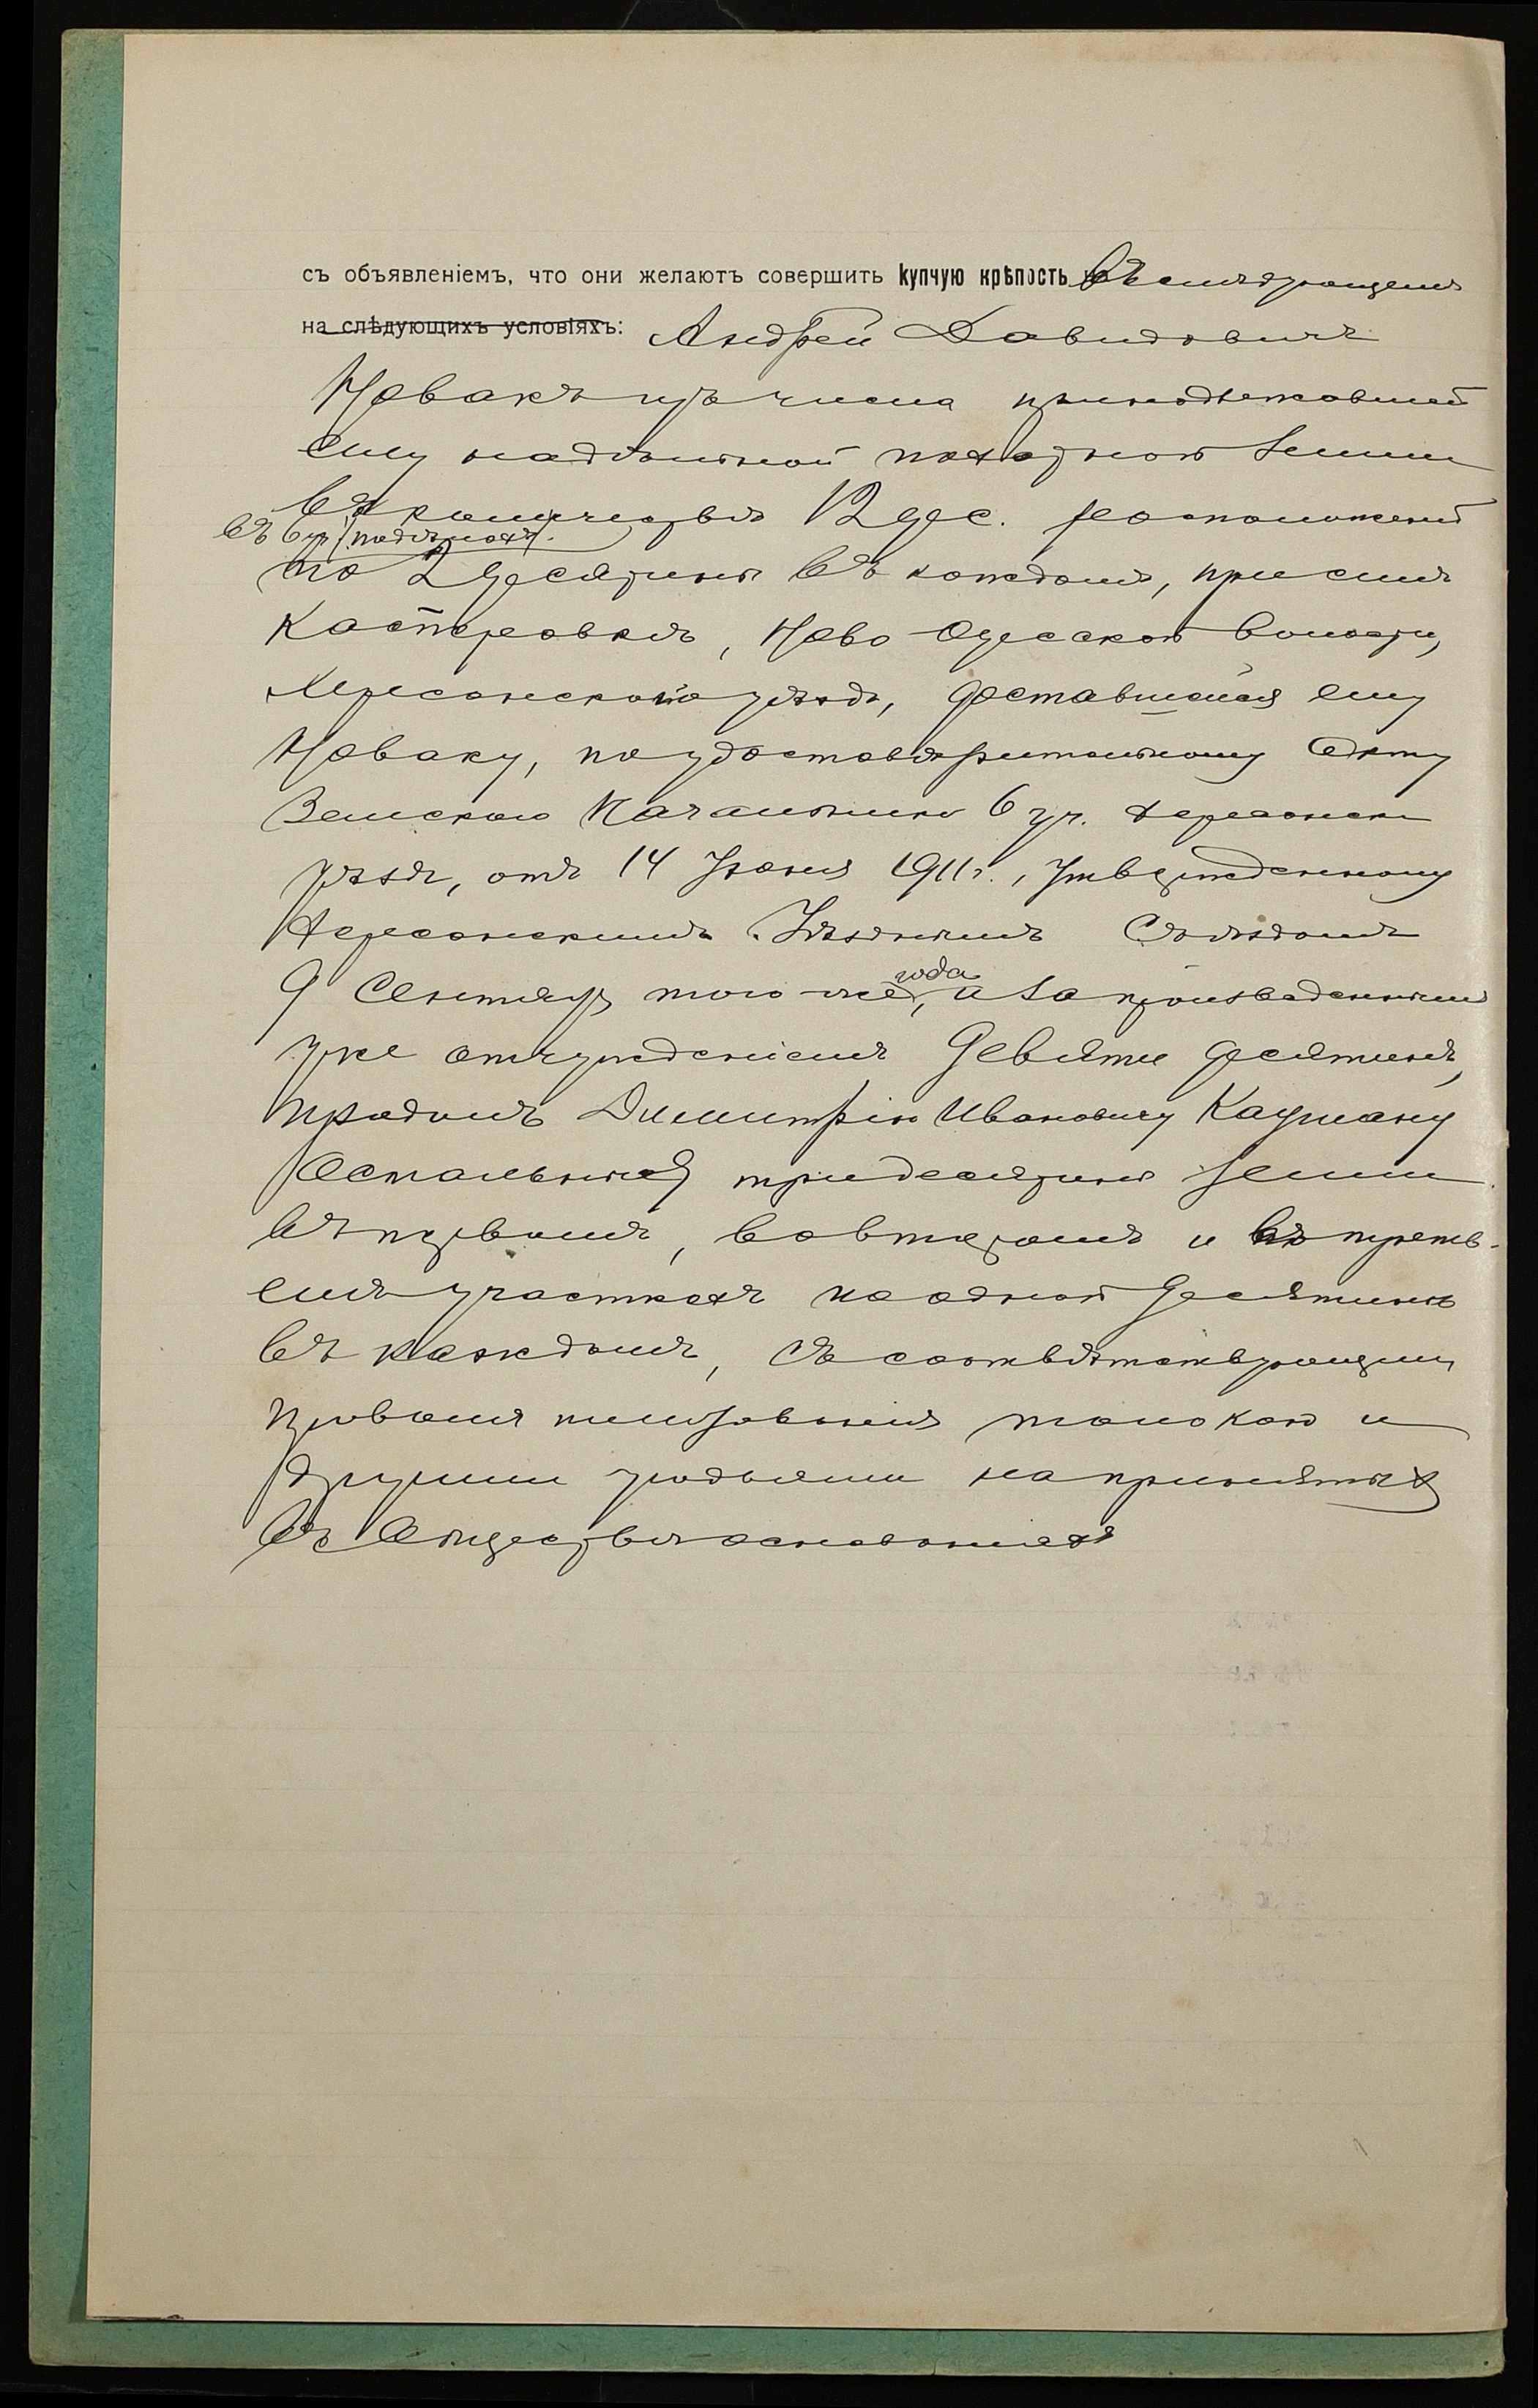 съ объявленіемъ, что они желаютъ совершить купчую крѣпость въ слѣдующемъ
на слѣдующихъ условіяхъ: Андрей Давидовичъ
Новакъ изъ числа принадлежавшей
ему надѣльной пахатной земли
въ количествѣ 12 дес. расположеной
въ 6 уч.
по 2 десятины въ каждомъ, при селѣ
Касперовкѣ, Ново-Одесской волости,
Херсонского уѣзда, доставшейся ему
Новаку, по удостовѣрительному акту
Земскаго Начальника 6 уч. Херсонск
уѣзда, отъ 14 Іюня 1911 г., утвержденному
Херсонскимъ Уѣзднымъ Съѣздомъ
9 Сентябр того-же года, а за произведеннымъ
уже отчужденіемъ девяти десятинъ,
продалъ Димитрію Ивановичу Кауманy
остальныя три десятины земли
въ первомъ, во второмъ и въ треть-
емъ участкахъ по одной десятинѣ
въ каждомъ, съ соотвѣтствующимъ
правомъ пользованія толокою и
другими угодьями на принятыхъ
въ Обществѣ основаніяхъ